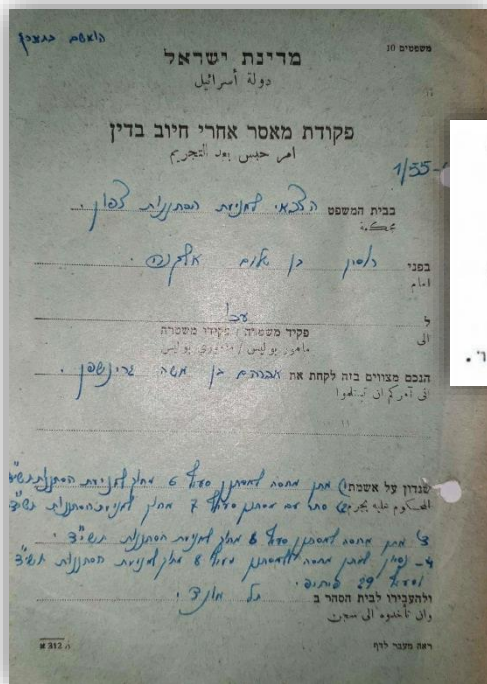 הואשם בתצרף
משפטים 10
מדינת ישראל
دولة أسرائيل
פקודת מאסר אחרי חיוב בדין
امر حبس بعد التجريم
1/55
בבית המשפט הצבאי למניעת הסתננות צפון.
محكمة
בפני בן שלום
امام
ל עכו
الى
פקיד משטרה / פקידי משטרה
مأمور بوليس / مأموري بوليس
הנכם מצווים בזה לקחת את אברהם בן משה גרינשפן.
اني آمركم ان تستلموا
שנדון על אשמת 1) מתן מחסה למסתנן סעיף 6 מחוק למניעת הסתננות תשי"ד
المحكوم عليه بجرم 2) סחר עם מסתנן סעיף 7 מחוק למניעת הסתננות תשי"ד
3) מתן מחסה למסתנן סעיף 6 מחוק למניעת הסתננות תשי"ד.
4- נסיון למתן מחסה למסתנן סעיף 6 מחוק למניעת הסתננות תשי"ד
וסעיף 29
ולהעבירו לבית הסהר ב תל מונד.
وان تأخذوه الى سجن
ראה מעבר לדף
ה 312 א